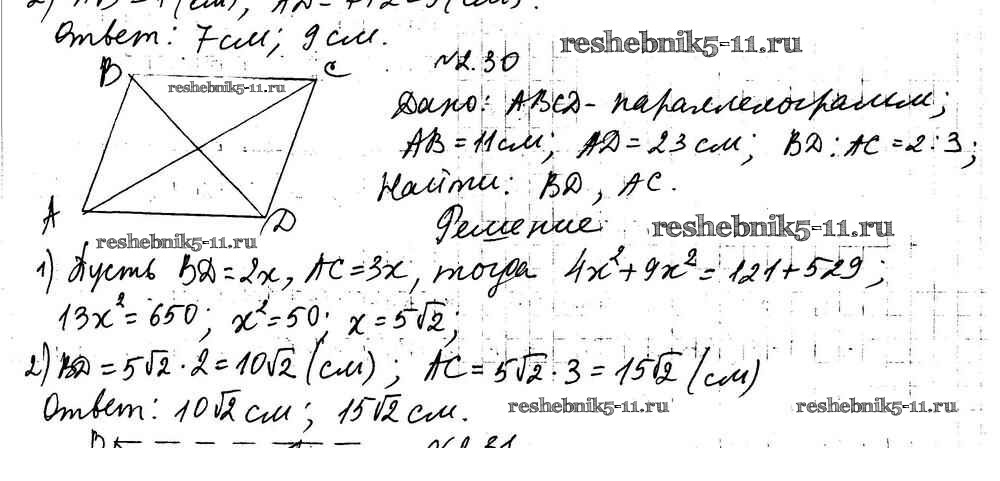 Ответ: 7см; 9см.
reshebnik5-11.ru
B
C
№2.30
reshebnik5-11.ru
Дано: ABCD - параллелограмм;
AB = 11см; AD = 23 см; BD : AC = 2 : 3;
Найти: BD, AC.
A
D
Решение
reshebnik5-11.ru
reshebnik5-11.ru
1) Пусть BD = 2x, AC = 3x, тогда 4x² + 9x² = 121 + 529;
13x² = 650; x² = 50; x = 5√2;
2) BD = 5√2 · 2 = 10√2 (см); AC = 5√2 · 3 = 15√2 (см)
Ответ: 10√2 см; 15√2 см.
reshebnik5-11.ru
reshebnik5-11.ru